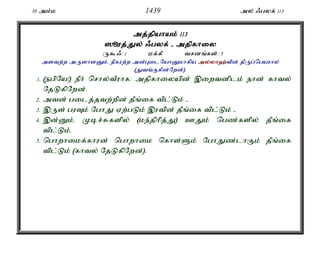 30 அம்ம 1439 அல் ஃபலக் 113
அத்தியாயம் 113
ஸூரத்துல் ஃபலக் - அதிகாலை
ருகூஃ: 1 மக்கீ வசனங்கள்: 5
அளவற்ற அருளாளனும், நிகரற்ற அன்புடையோனுமாகிய அல்லாஹ்வின் திருப்பெயரால்
(துவங்குகின்றேன்).
1. (நபியே!) நீர் சொல்வீராக: அதிகாலையின் இறைவனிடம் நான் காவல்
தேடுகிறேன்.
2. அவன் படைத்தவற்றின் தீங்கை விட்டும் -
3. இருள் பரவும் போது ஏற்படும் இரவின் தீங்கை விட்டும் -
4. இன்னும், முடிச்சுகளில் (மந்திரித்து) ஊதும் பெண்களின் தீங்கை
விட்டும்,
5. பொறாமைக்காரன் பொறாமை கொள்ளும் போதுண்டாகும் தீங்கை
விட்டும் (காவல் தேடுகிறேன்).